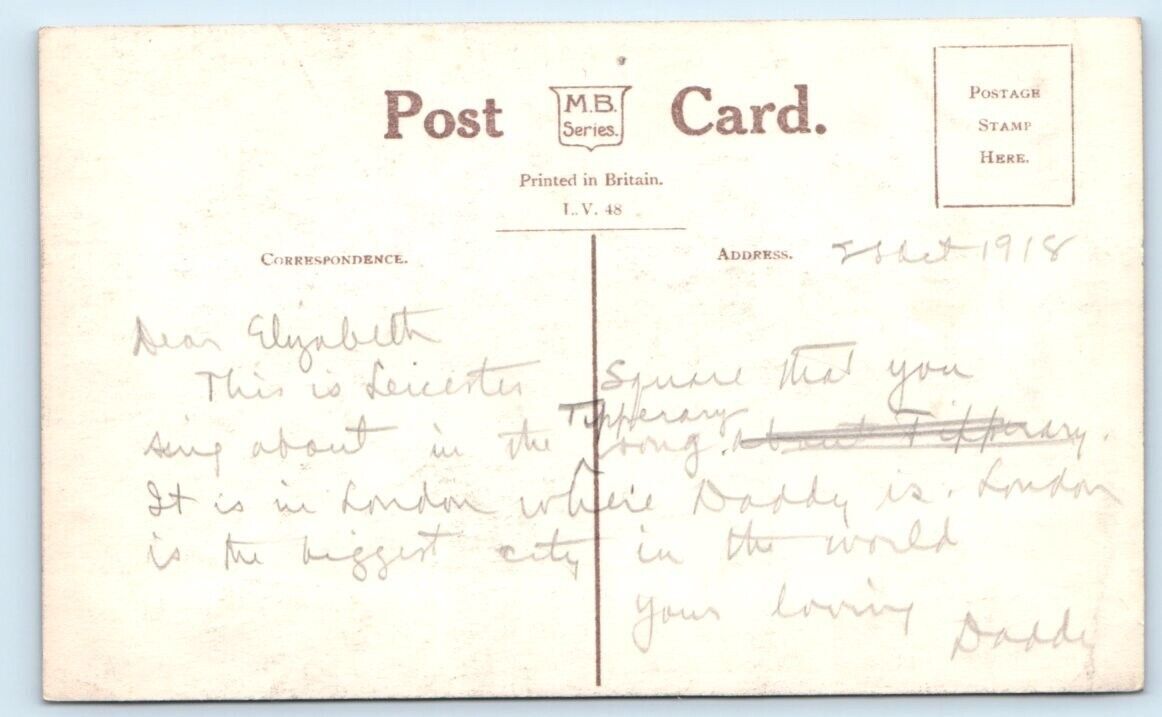 Post M.B. Series. Card.
POSTAGE
STAMP
HERE.
Printed in Britain.
L.V. 48
CORRESPONDENCE.
ADDRESS.
Oct 1918
Dear Elizabeth
This is Leicester Square that you
sing about in the Tipperary song. about Tipperary.
It is in London where Daddy is. London
is the biggest city in the world
Your loving
Daddy